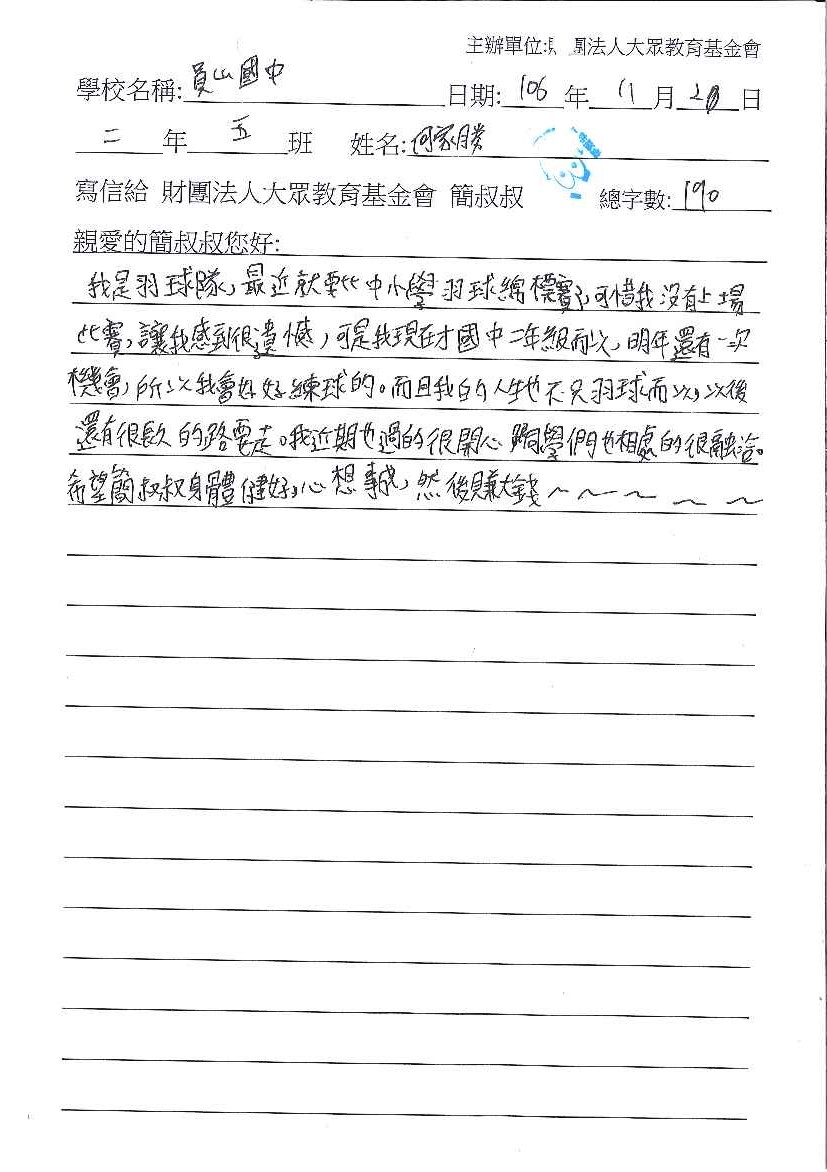 主辦單位:財團法人大眾教育基金會
學校名稱:員山國中 日期:106年11月20日
二年五班 姓名:何家勝
寫信給 財團法人大眾教育基金會 簡叔叔 總字數:190
親愛的簡叔叔您好:
我是羽球隊,最近就要比中小學羽球錦標賽了,可惜我沒有上場
比賽,讓我感到很遺憾,可是我現在才國中二年級而以,明年還有一次
機會,所以我會好好練球的。而且我的人生也不只羽球而以,以後
還有很長的路要走。我近期也過的很開心,跟同學們也相處的很融洽。
希望簡叔叔身體健好,心想事成,然後賺大錢~~~~~